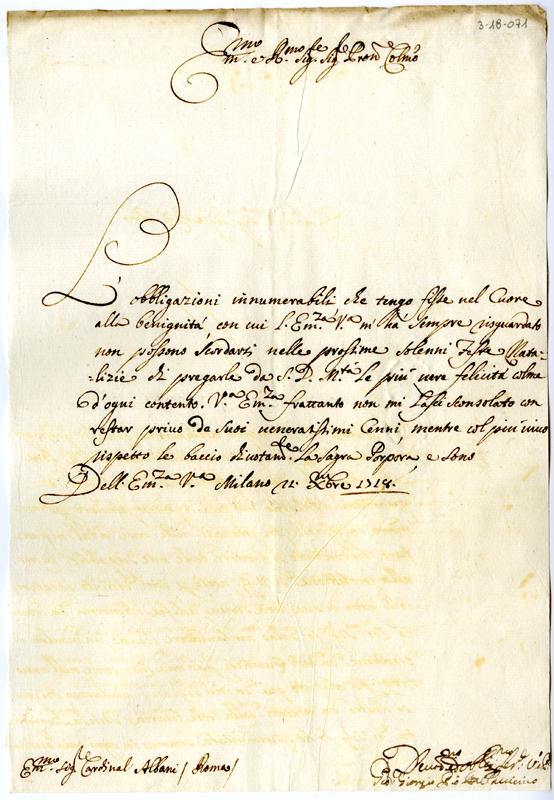 3-18-071
Emmo e Rmo Sig.re Sig.re Pron. Colmo
L'obbligazioni innumerabili che tengo fisse nel Cuore
alla benignità con cui l'Em.za V.a m'ha sempre risguardato
non possono scordarsi nelle prossime solenni feste Nata=
=lizie di pregarle da S. D. M.tà le più vere felicità colme
d'ogni contento. V.a Em.za frattanto non mi lasci sconsolato con
restar privo de suoi veneratissimi Cenni mentre col più vivo
rispetto le baccio divotam.te la Sagra Porpora, e sono
Dell'Em.za V.a Milano 21 Xbre 1718.
Emmo Sig.r Cardinal Albani / Roma /
Gio: Giorgio